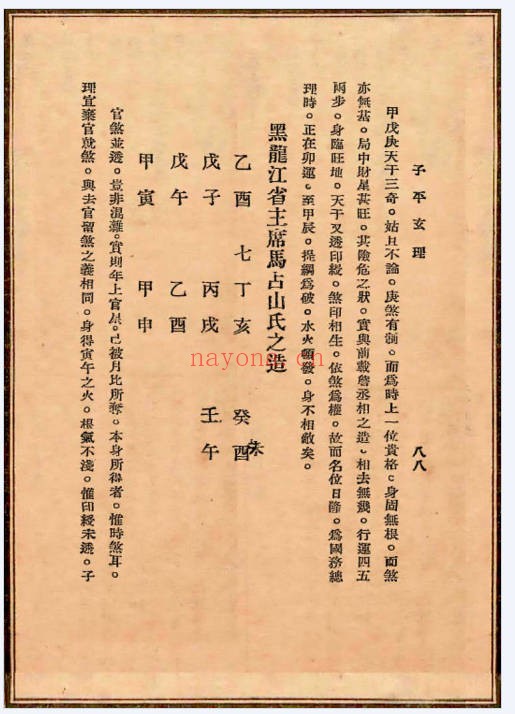 子平玄理 八八
甲戊庚天干三奇。姑且不論。庚煞有制。而爲時上一位貴格。身固無根。而煞
亦無基。局中財星甚旺。其險危之狀。實與前載詹丞相之造。相去無幾。行運四五
兩步。身臨旺地。天干又透印綬。煞印相生。依煞爲權。故而名位日隆。爲國務總
理時。正在卯運。至甲辰。提綱爲破。水火頓發。身不相敵矣。
黑龍江省主席馬占山氏之造
乙酉 七丁亥 癸酉 未
戊子 丙戌 壬午
戊午 乙酉
甲寅 甲申
官煞並透。豈非混雜。實則年上官星。已被月比所奪。本身所得者。惟時煞耳。
理宜棄官就煞。與去官留煞之義相同。身得寅午之火。根氣不淺。惟印綬未透。子
nayong.cn